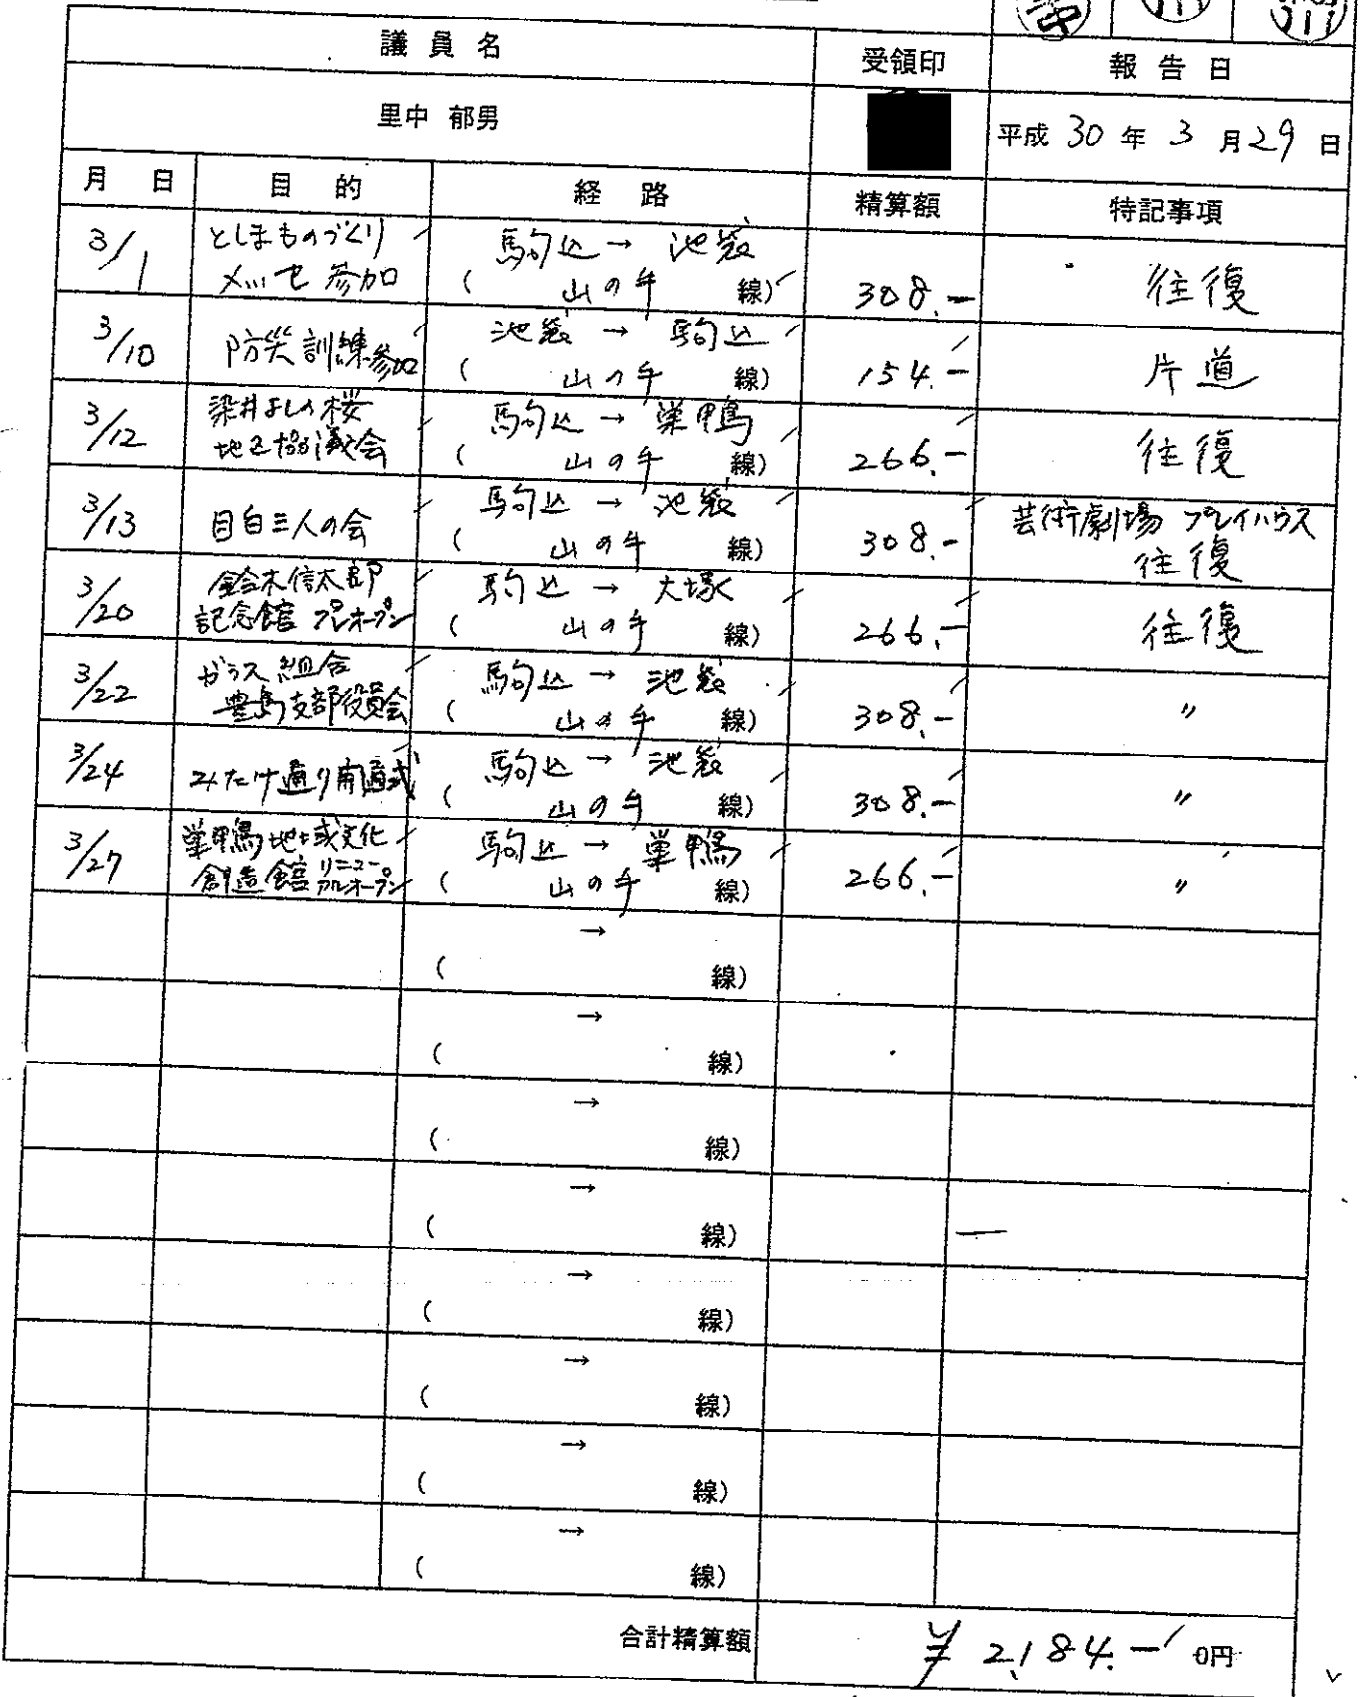 議員名 受領印 報告日
里中 郁男 平成 30 年 3 月 29 日
月 日 目 的 経 路 精算額 特記事項
3/1 としまものづくり 駒込 → 池袋
メッセ参加 ( 山の手 線) 308.- 往復
3/10 防災訓練参加 池袋 → 駒込
( 山の手 線) 154.- 片道
3/12 染井よしの桜 駒込 → 巣鴨
地区協議会 ( 山の手 線) 266.- 往復
3/13 目白三人の会 駒込 → 池袋 芸術劇場 プレイハウス
( 山の手 線) 308.- 往復
3/20 鈴木信太郎 駒込 → 大塚
記念館 プレオープン ( 山の手 線) 266.- 往復
3/22 ガラス組合 駒込 → 池袋
豊島支部役員会 ( 山の手 線) 308.- 〃
3/24 みたけ通り開通式 駒込 → 池袋
( 山の手 線) 308.- 〃
3/27 巣鴨地域文化 駒込 → 巣鴨
創造館 リニューアルオープン ( 山の手 線) 266.- 〃
→
( 線)
→
( 線)
→
( 線)
→
( 線)
→
( 線)
→
( 線)
→
( 線)
→
( 線)
合計精算額 ¥2,184.- 0円